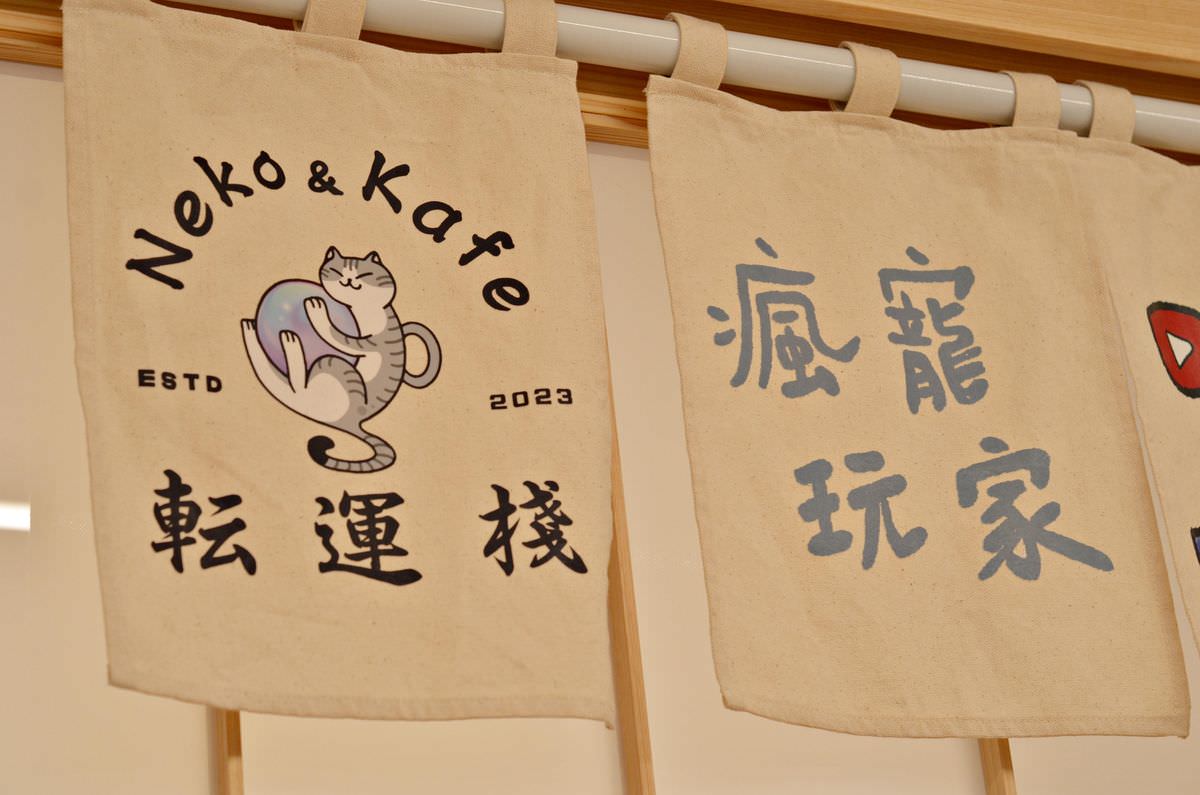 Neko & Kafe
ESTD 2023
転運棧
瘋寵
玩家